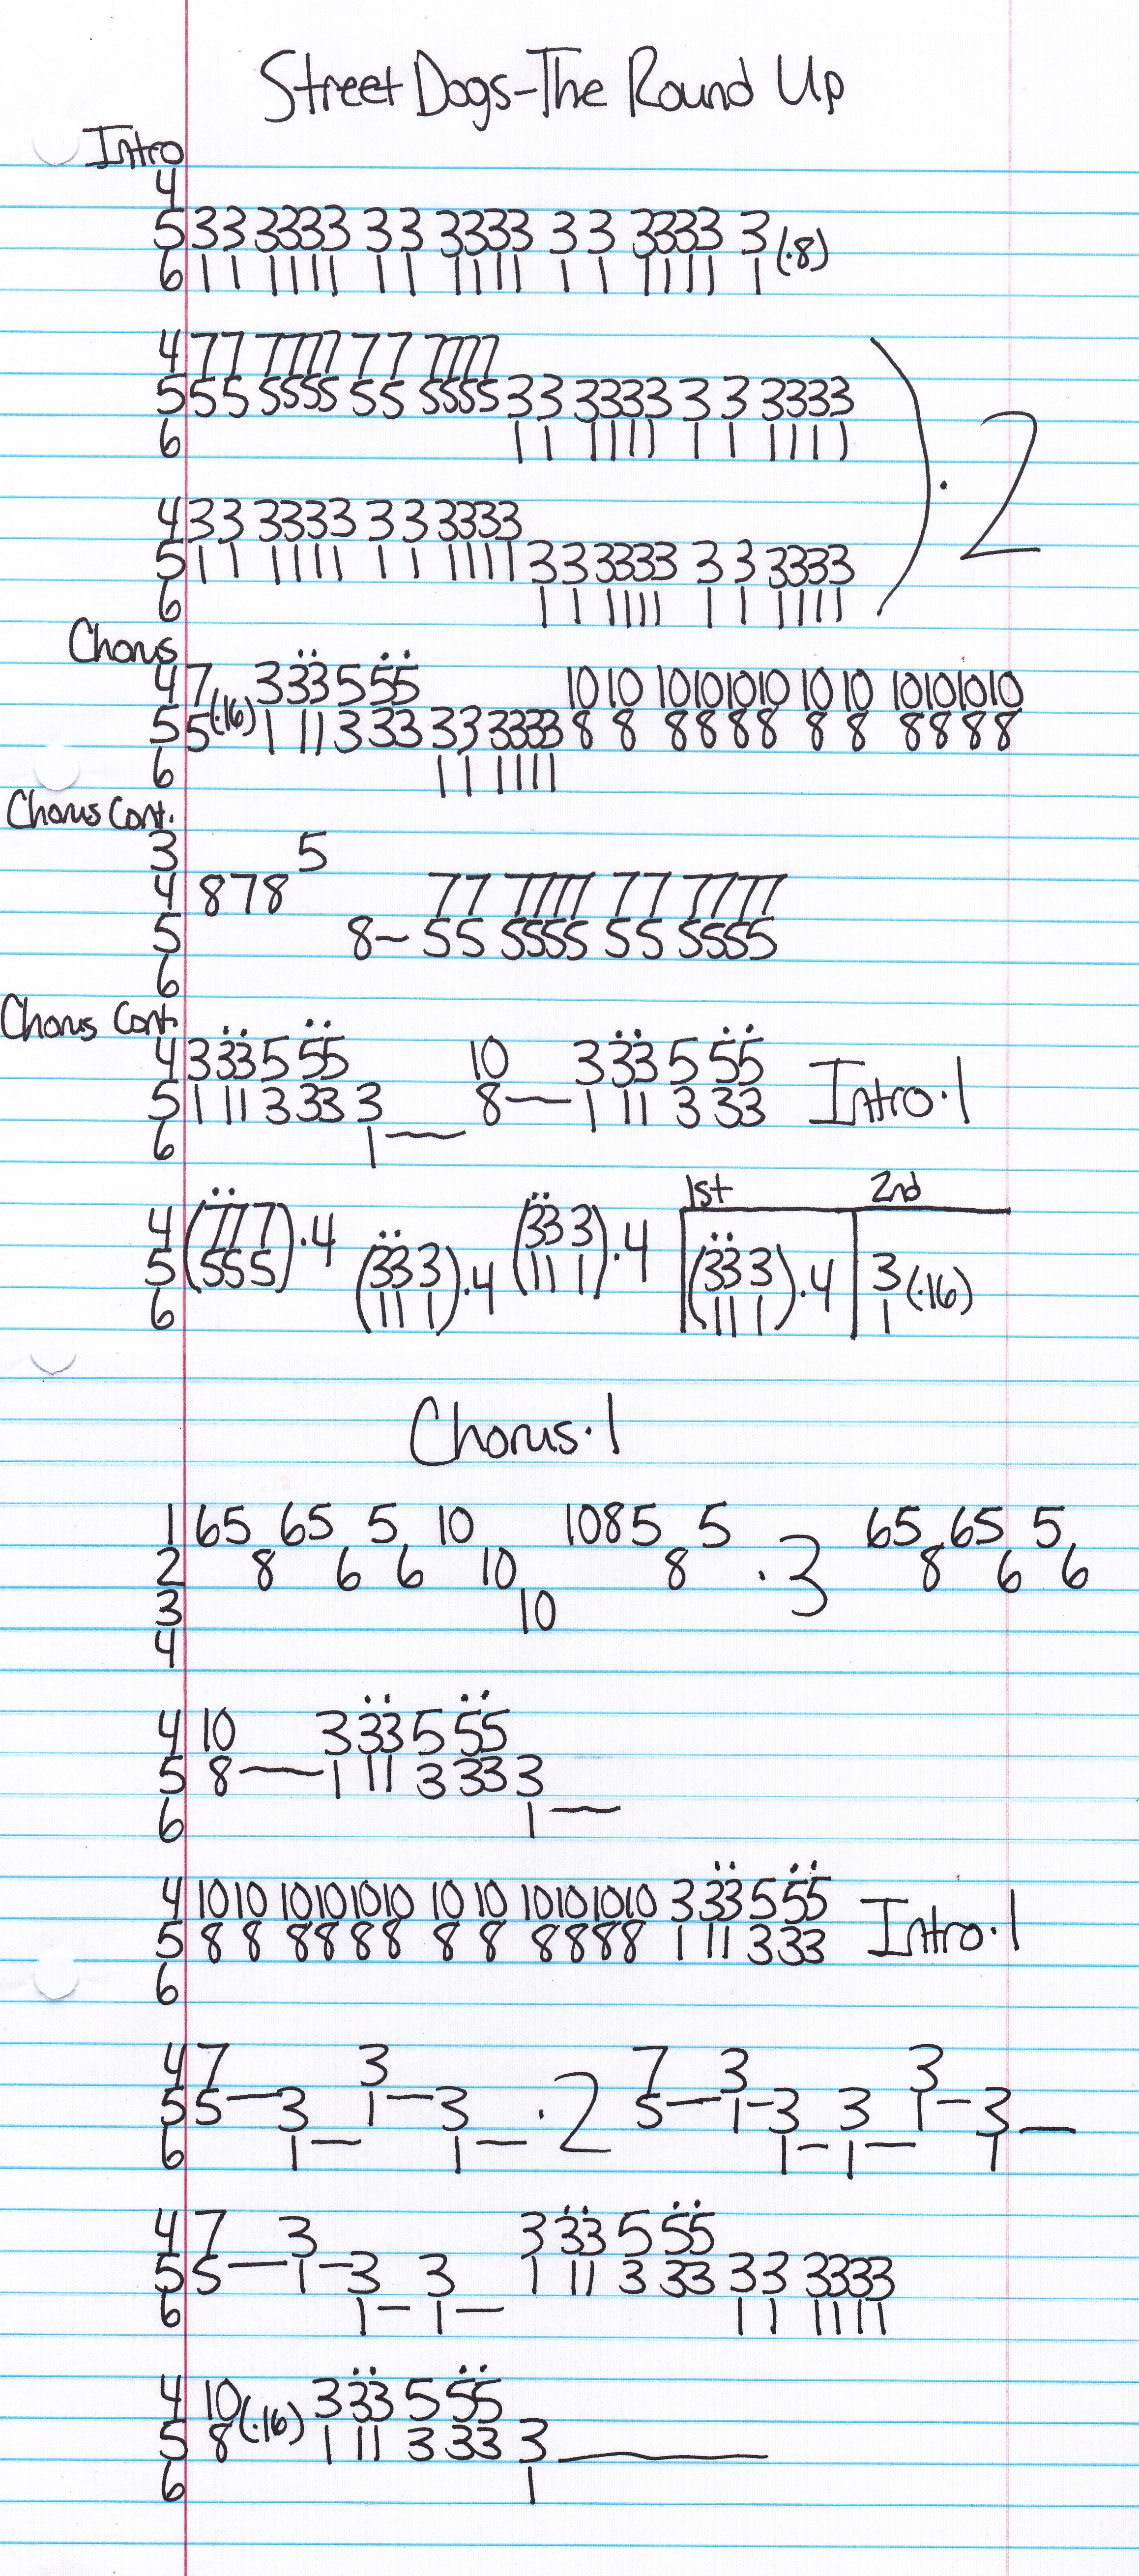 Street Dogs-The Round Up
Intro
4
5 33 3333 33 3333 33 3333 3 (·8)
6 11 1111 11 1111 11 1111 1
4 77 7777 77 7777
5 55 5555 55 5555 33 3333 3 3 3333
6 11 1111 1 1 1111
) · 2
4 33 3333 33 3333
5 11 1111 11 1111 33 3333 3 3 3333
6 11 1111 1 1 1111
Chorus
4 7 3 33 5 55 10 10 10101010 10 10 10101010
5 5 (·16) 1 11 3 33 33 3333 8 8 8888 8 8 8888
6 11 1111
Chorus Cont.
3 5
4 878 77 7777 77 7777
5 8~ 55 5555 55 5555
6
Chorus Cont.
4 3 33 5 55 10 3 33 5 55
5 1 11 3 33 3 8— 1 11 3 33 Intro·1
6 1—
1st 2nd
4 (77 7)·4 (33 3)·4
5 (55 5) (33 3)·4 (11 1) (33 3)·4 3 (·16)
6 (11 1) (11 1) 1
Chorus·1
1 65 65 5 10 1085 5 65 65 5
2 8 6 6 10 8 ·3 8 6 6
3 10
4
4 10 3 33 5 55
5 8— 1 11 3 33 3
6 1—
4 10 10 10101010 10 10 10101010 3 33 5 55
5 8 8 8888 8 8 8888 1 11 3 33 Intro·1
6
4 7 3 7 3 3
5 5—3 1—3 ·2 5—1-3 3 1-3—
6 1— 1— 1- 1— 1
4 7 3 3 33 5 55
5 5—1-3 3 1 11 3 33 33 3333
6 1- 1— 11 1111
4 10 3 33 5 55
5 8 (·16) 1 11 3 33 3—
6 1